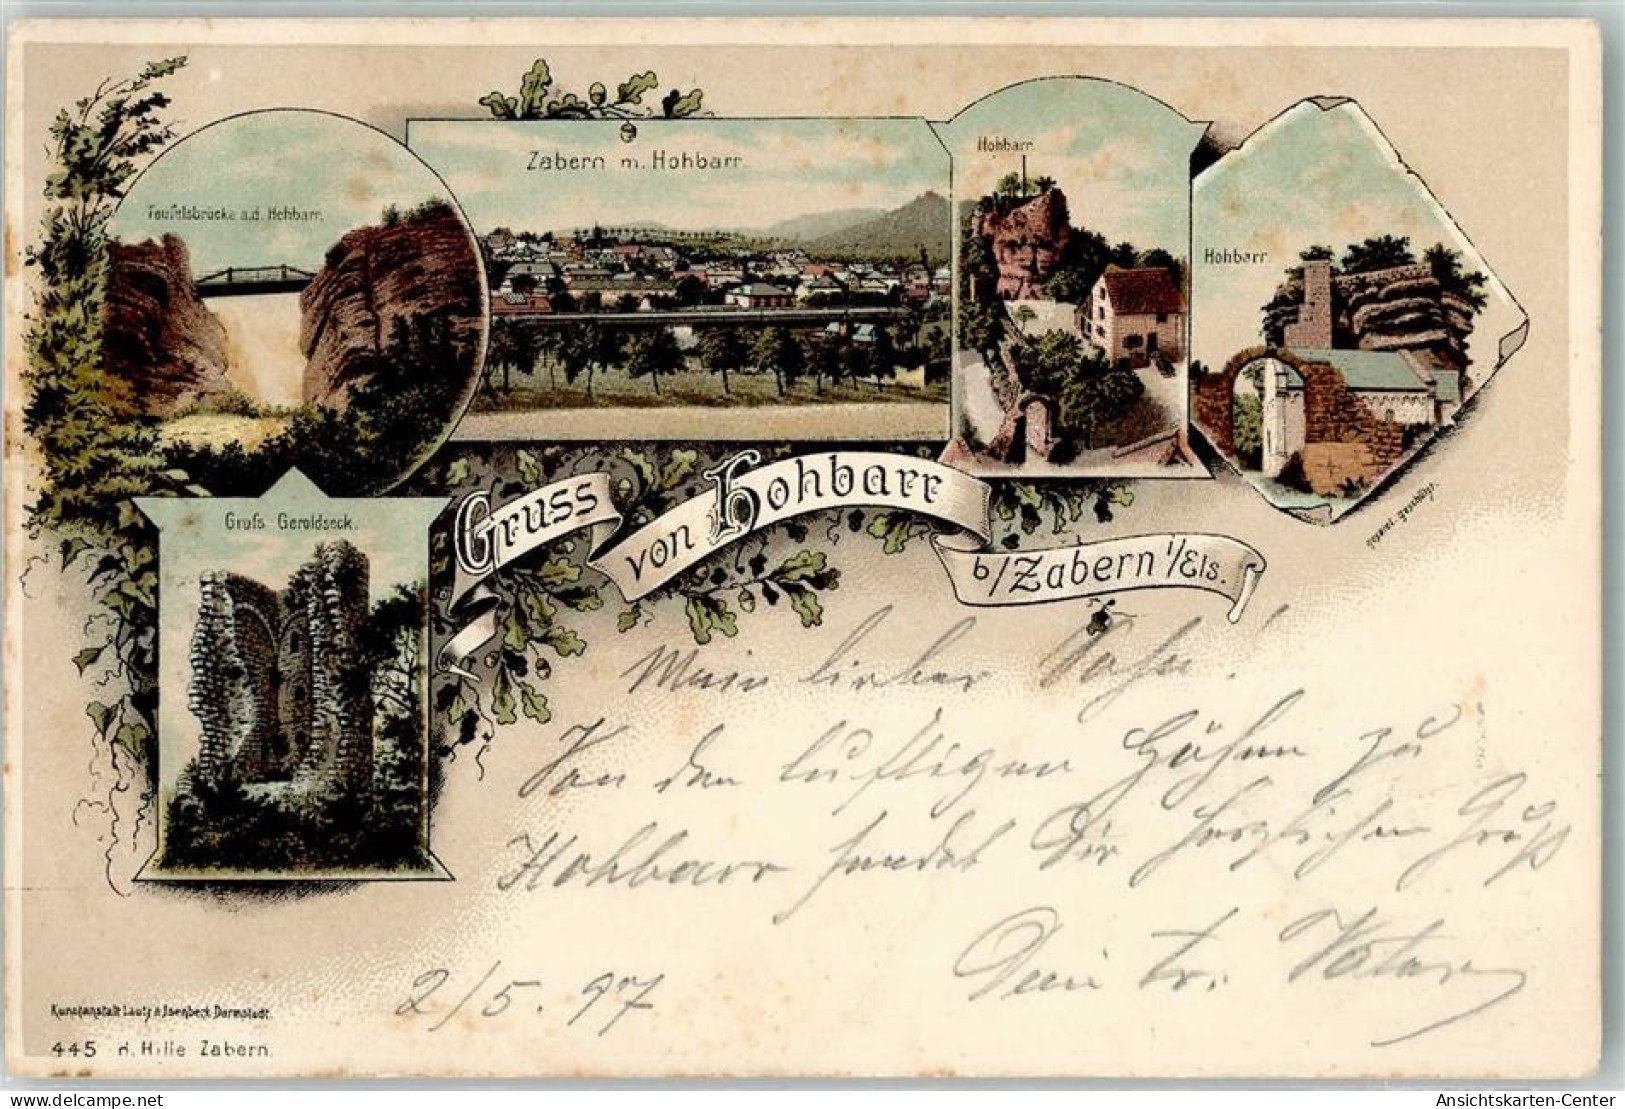 Teufelsbrücke a.d. Hohbarr.
Zabern m. Hohbarr.
Hohbarr.
Hohbarr.
Gesetzl. geschützt.
Grofs Geroldseck.
Gruss
von Hohbarr
b/Zabern i/Els.
Mein lieber
Von den luftigen Höhen zu
Hohbarr sendet Dir herzlichen Gruß
Dein tr. Vater
2/5. 97
Kunstanstalt Lautz & Isenbeck Darmstadt.
445 H. Hille Zabern.
akpool.de / delcampe.net
Ansichtskarten-Center